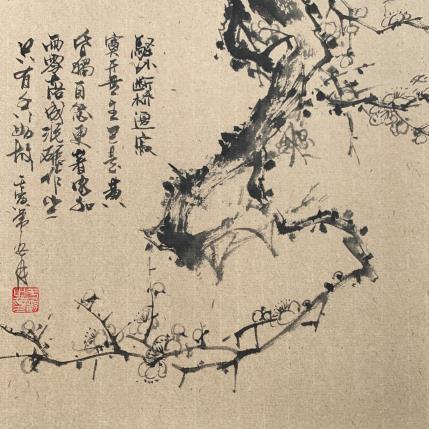 驛外断桥邊寂
寞开無主已是黄
昏獨自愁更著風和
雨零落成泥碾作尘
只有香如故